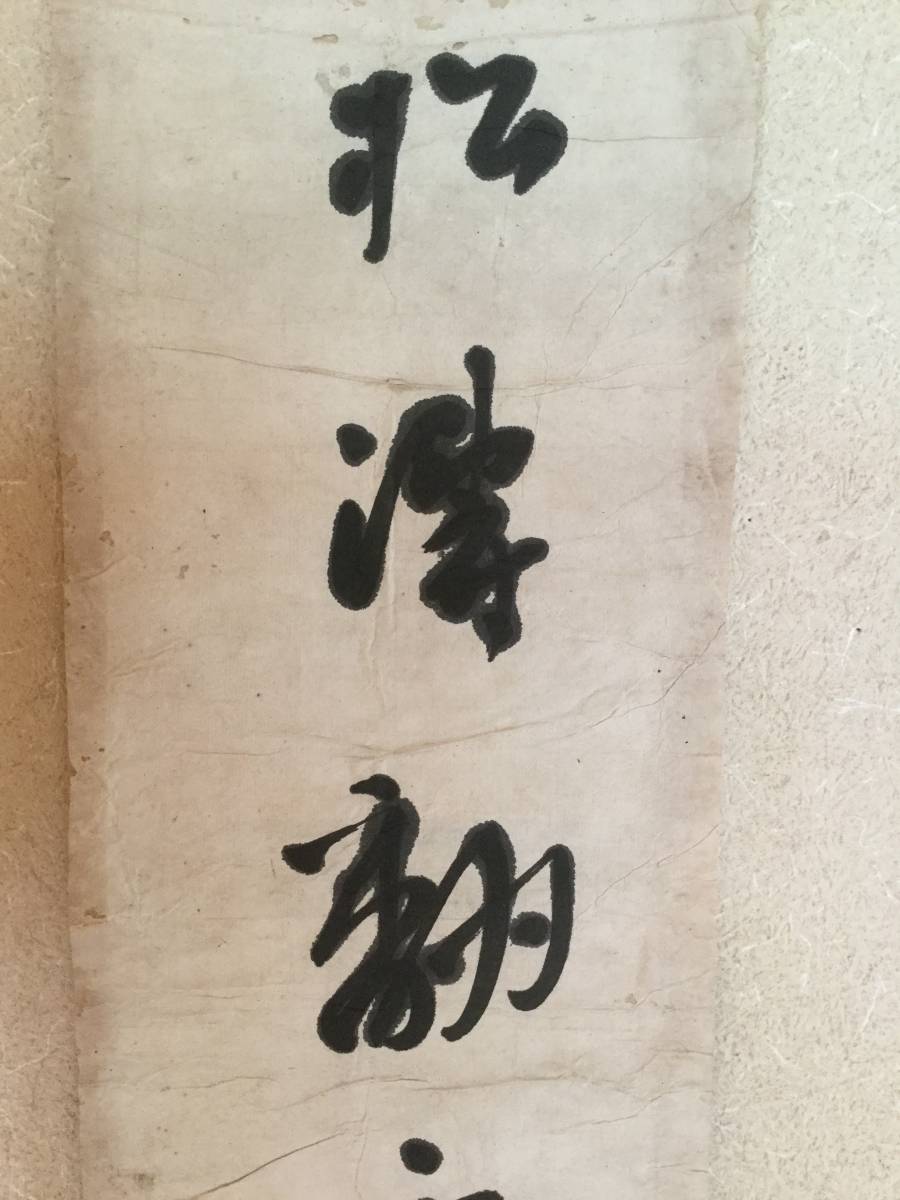 松濤翻